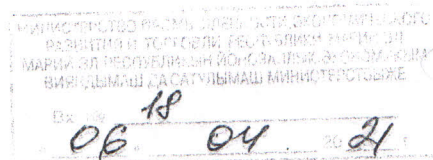 МИНИСТЕРСТВО ПРОМЫШЛЕННОСТИ, ЭКОНОМИЧЕСКОГО
РАЗВИТИЯ И ТОРГОВЛИ РЕСПУБЛИКИ МАРИЙ ЭЛ
МАРИЙ ЭЛ РЕСПУБЛИКЫН
ВИЯҤДЫМАШ ДА САТУЛЫМАШ МИНИСТЕРСТВЫЖЕ
Вх. № 18
06. 04. 2021 г.